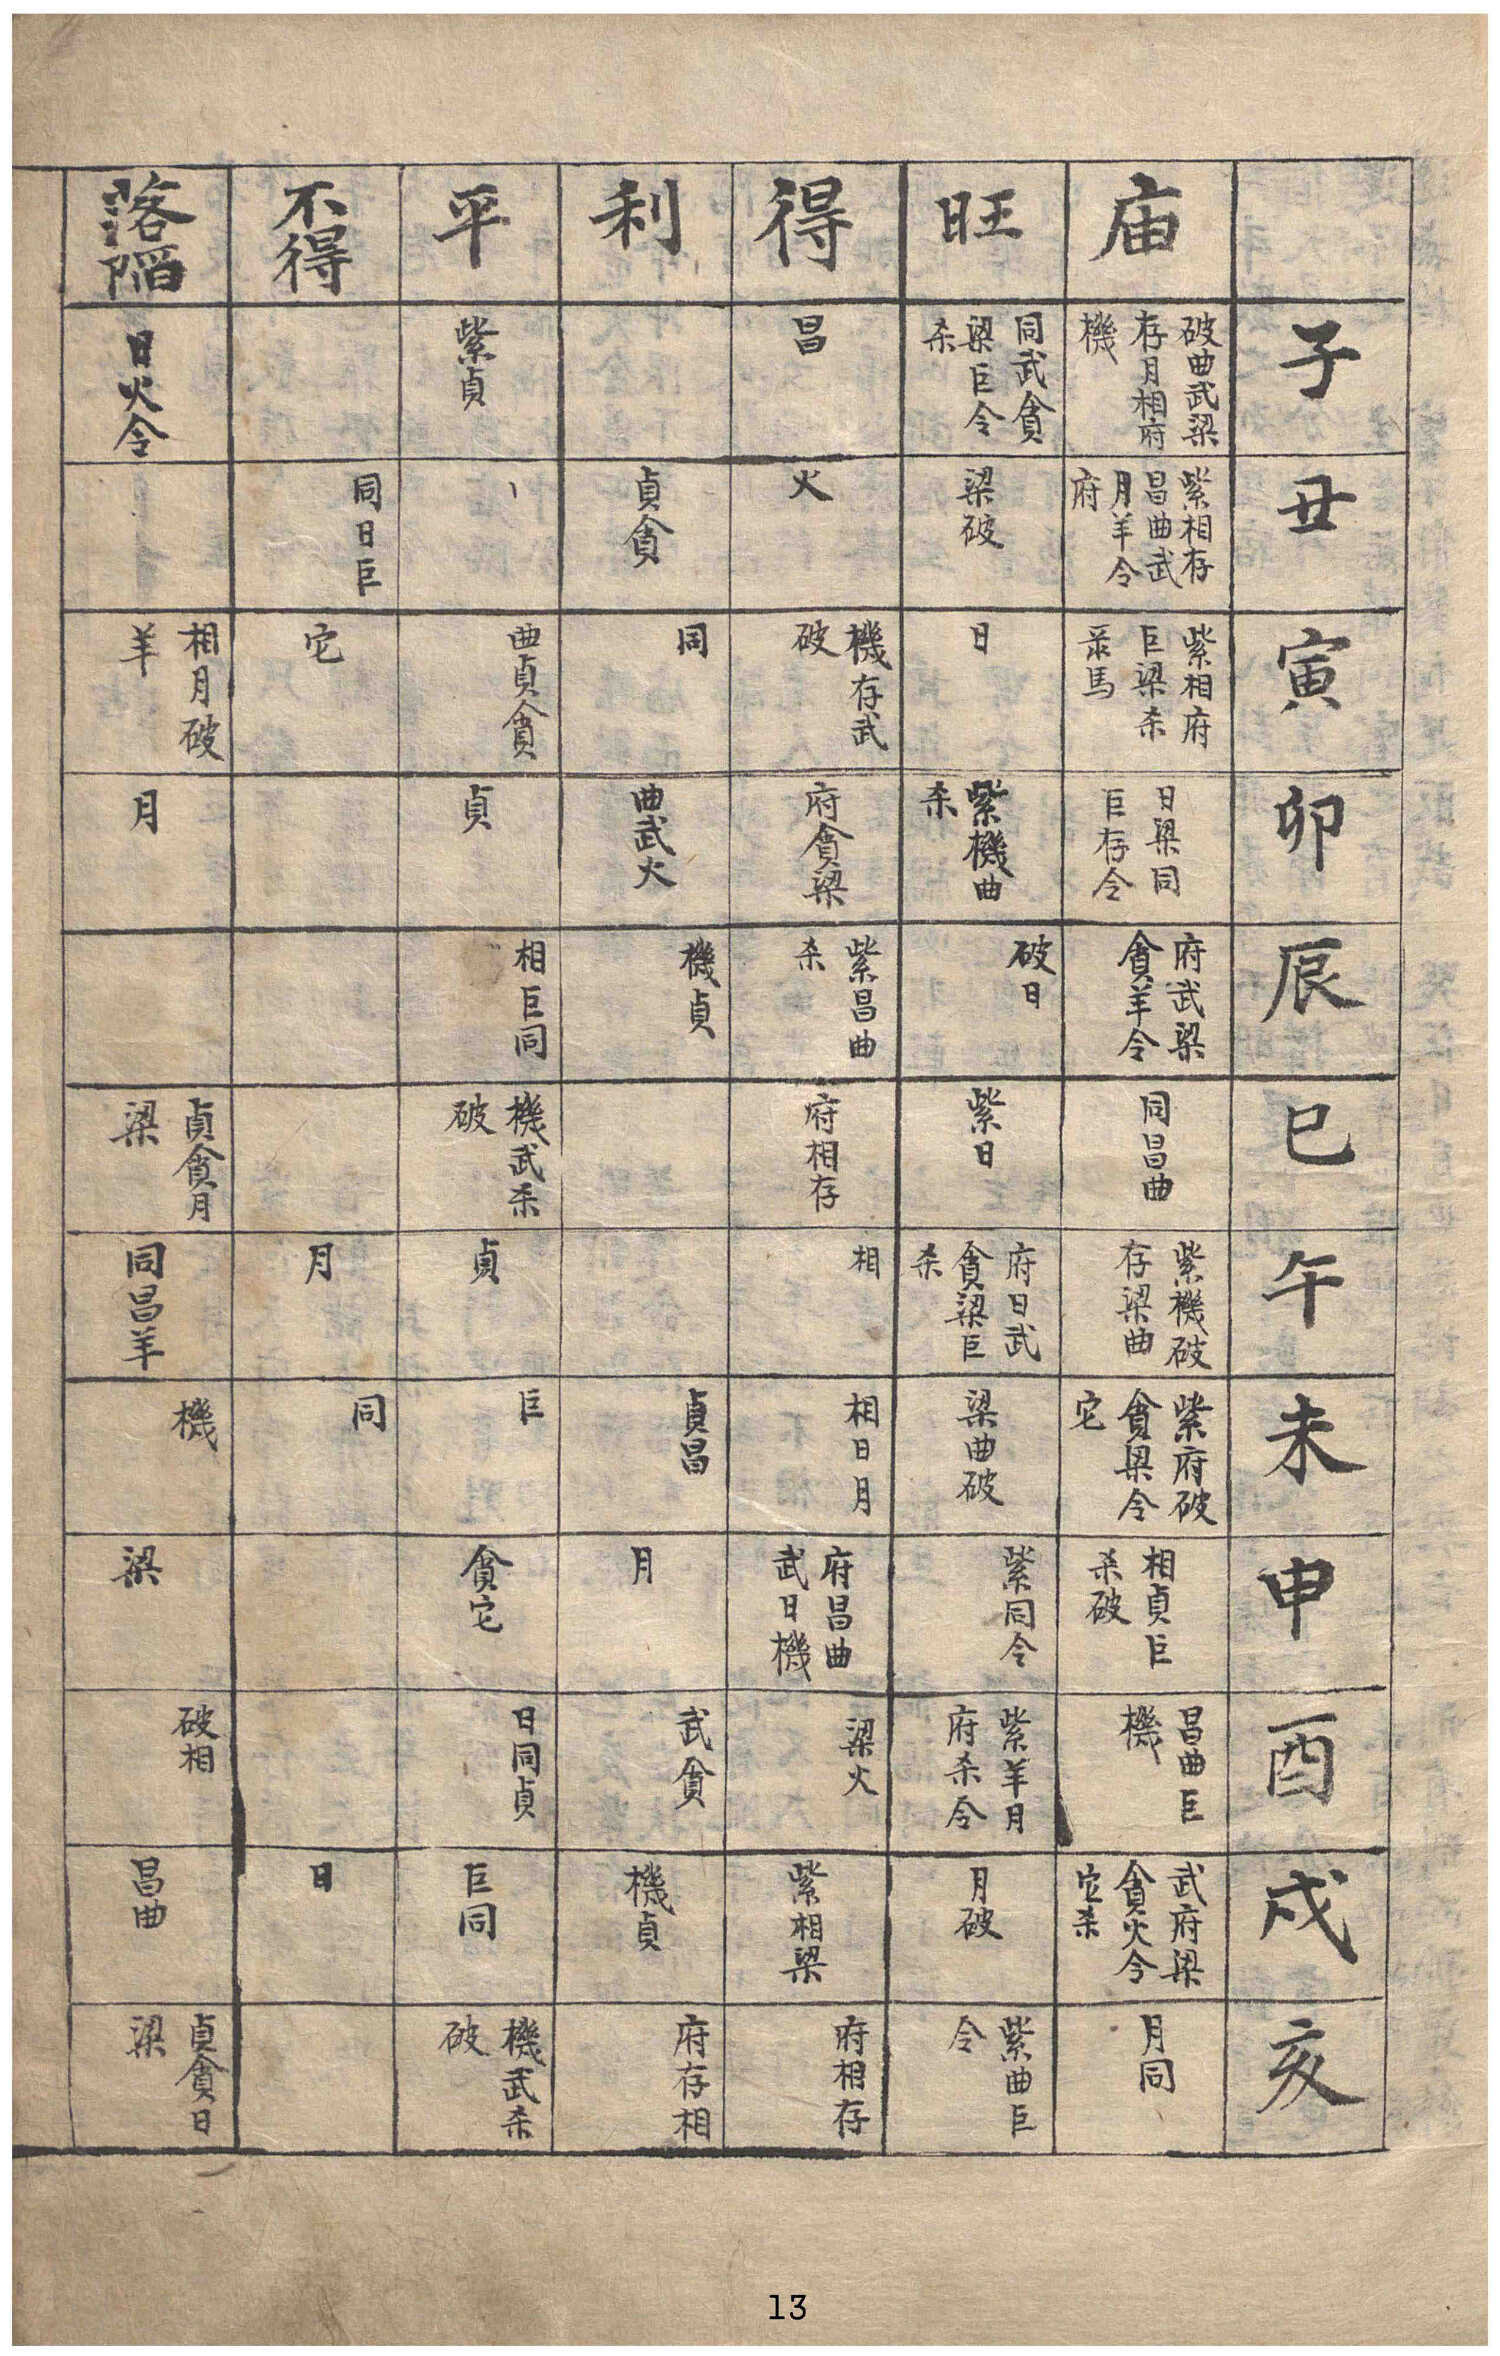 庙
旺
得
利
平
不得
落陷
子
破曲武梁
存月相府
機
同武貪
梁巨令
杀
昌
紫貞
日火令
丑
紫相存
昌曲武
月羊令
府
梁破
火
貞貪
同日巨
寅
紫相府
巨梁杀
馬
日
機存武
破
同
曲貞貪
它
相月破
羊
卯
日梁同
巨存令
紫機曲
杀
府貪梁
曲武火
貞
月
辰
府武梁
貪羊令
破日
紫昌曲
杀
機貞
相巨同
巳
同昌曲
紫日
府相存
機武杀
破
貞貪月
梁
午
紫機破
存梁曲
府日武
貪梁巨
杀
相
貞
月
同昌羊
未
紫府破
貪梁令
它
梁曲破
相日月
貞昌
巨
同
機
申
相貞巨
杀破
紫同令
府昌曲
武日機
月
貪它
梁
酉
昌曲巨
機
紫羊月
府杀令
梁火
武貪
日同貞
破相
戌
武府梁
貪火令
它杀
月破
紫相梁
機貞
巨同
日
昌曲
亥
月同
紫曲巨
令
府相存
府存相
機武杀
破
貞貪日
梁
13